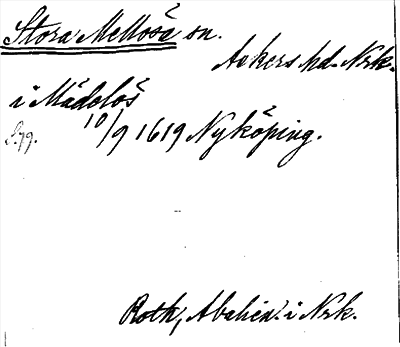 Stora Mellösa sn.
Askers hd. Nrk.
i Mädolös
10/9 1619 Nyköping.
S. 79.
Roth, Abahid. i Nrk.